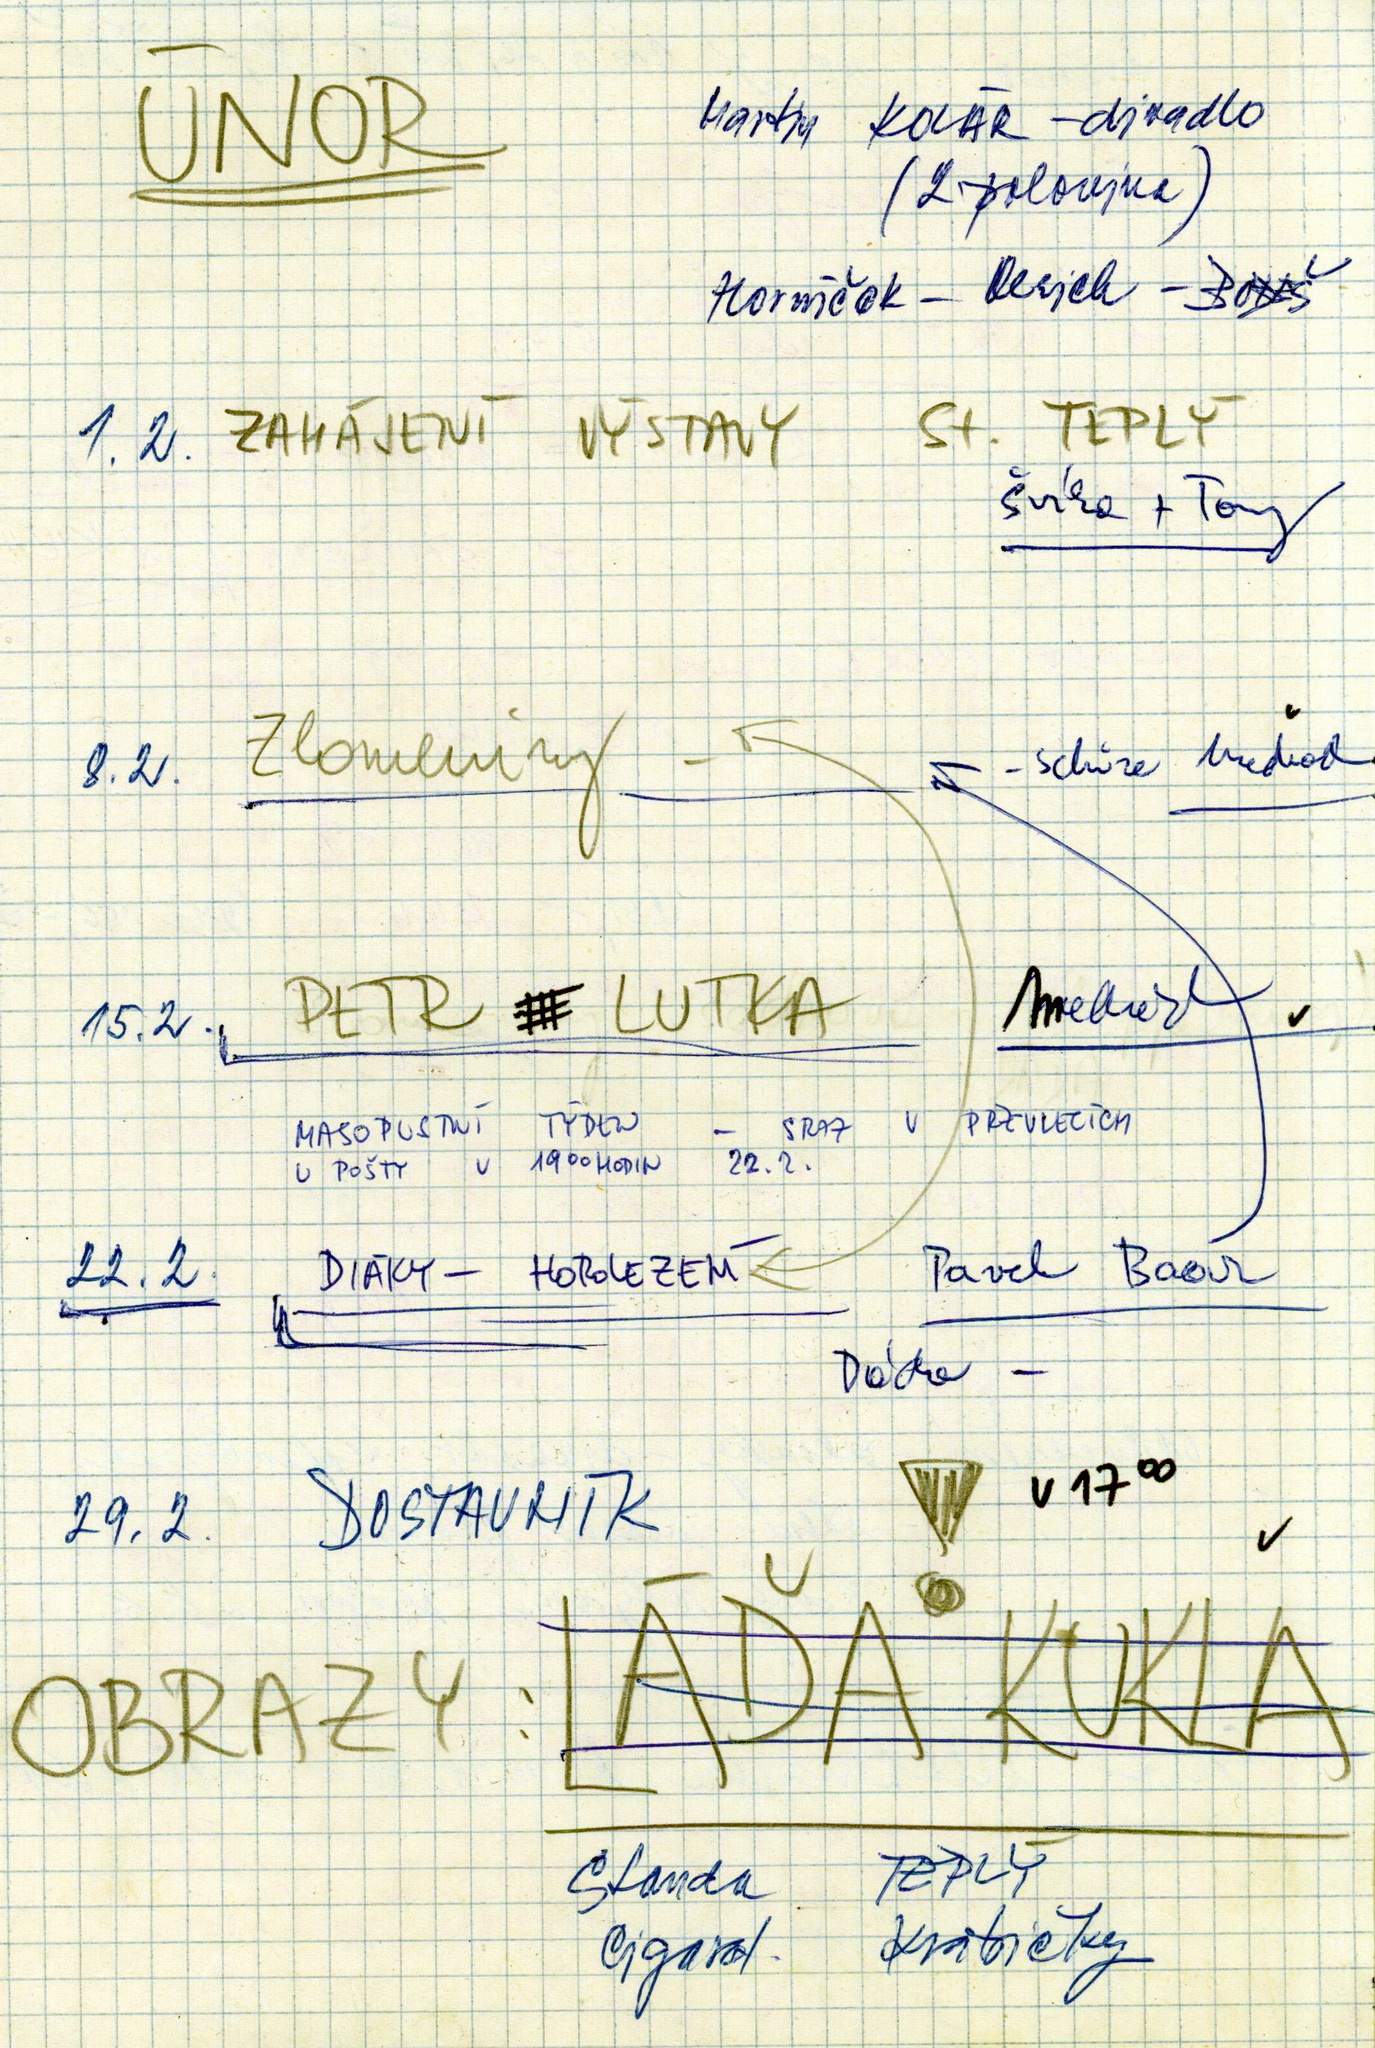 ÚNOR
Martin KOLÁŘ - divadlo
(2. polovina)
Horníček -
1.2. ZAHÁJENÍ VÝSTAVY St. TEPLÝ
+ Tony
8.2. Zlomeniny - - schůze
15.2. PETR LUTKA
MASOPUSTNÍ TÝDEN - SRAZ V PŘEVLECÍCH
U POŠTY V 19 00 HODIN 22.2.
22.2. DIÁKY - HOROLEZENÍ Pavel
29.2. DOSTAVNÍK V 17 00
OBRAZY : LÁĎA KUKLA
Standa TEPLÝ
Cigaret. Krabičky